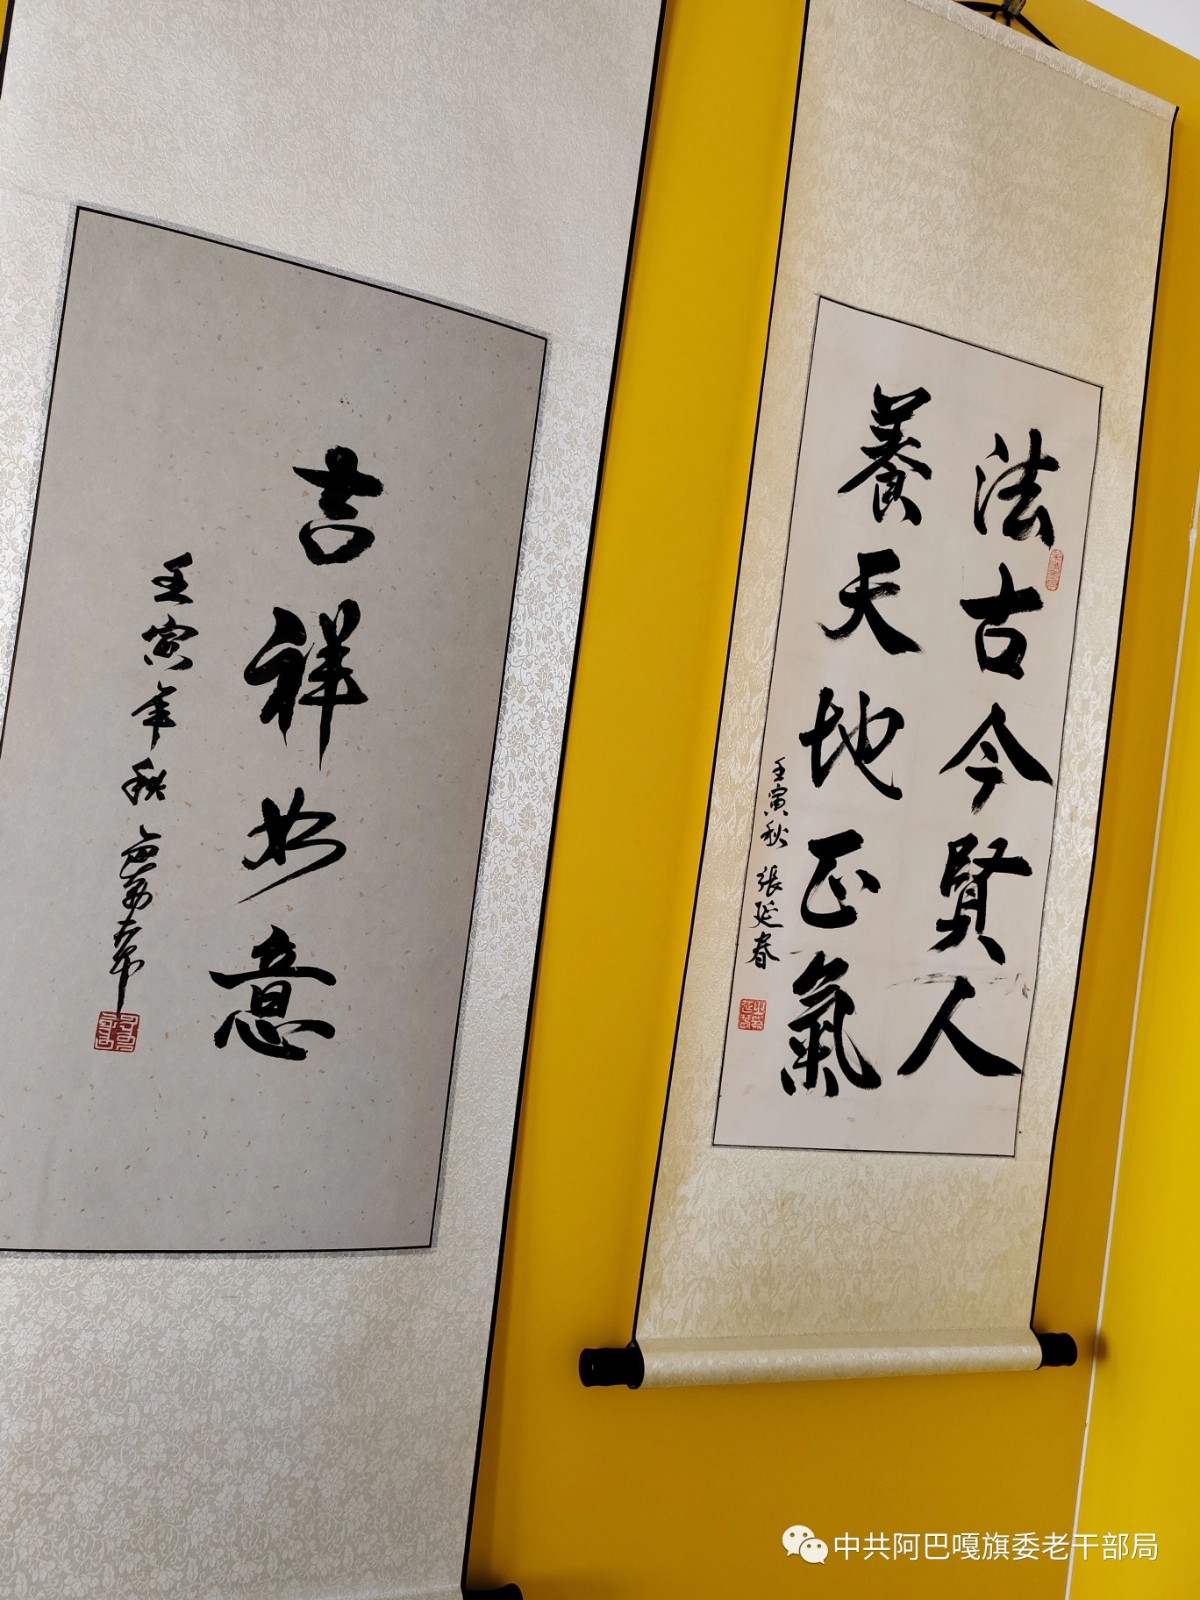 法古今賢人
養天地正氣
壬寅秋 張延春
吉祥如意
壬寅年秋
中共阿巴嘎旗委老干部局